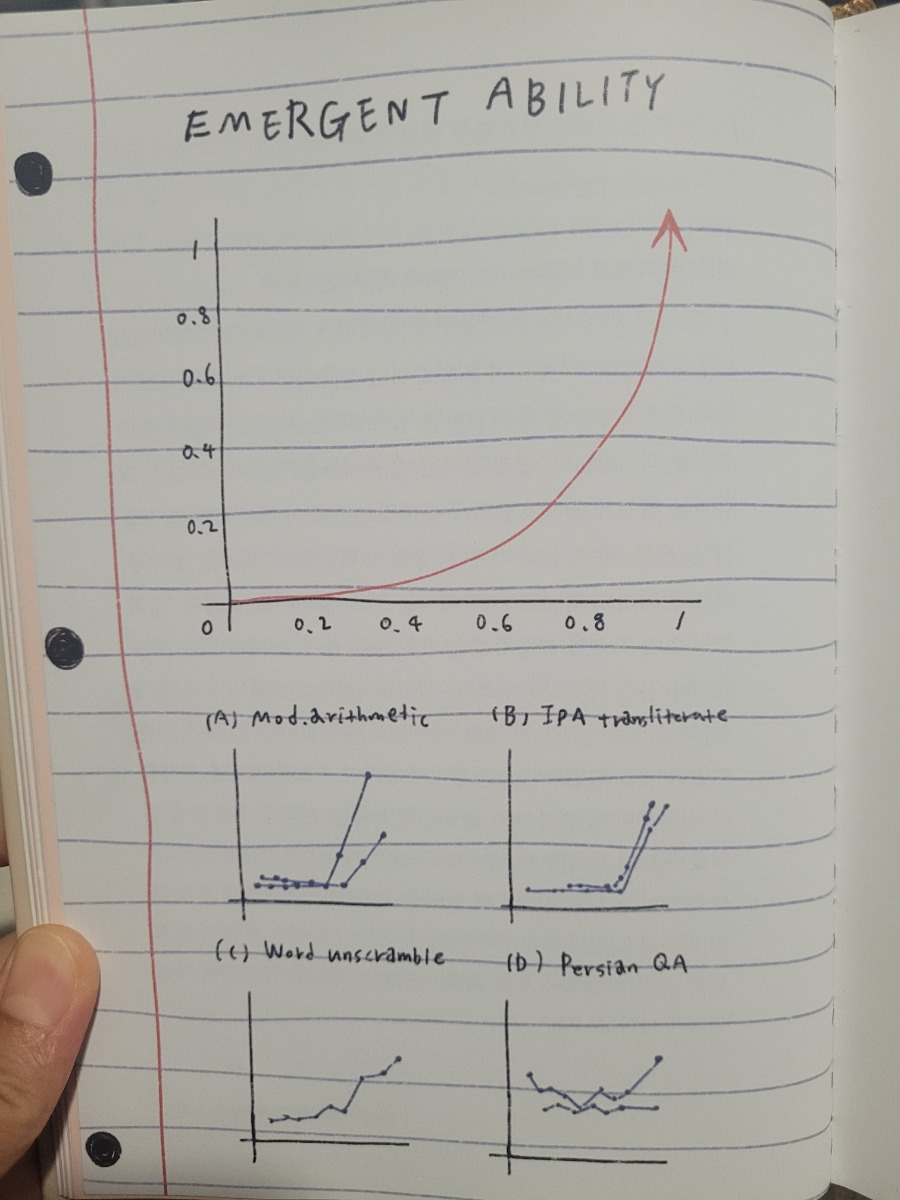 EMERGENT ABILITY
1
0.8
0.6
0.4
0.2
0 0.2 0.4 0.6 0.8 1
(A) Mod.arithmetic (B) IPA transliterate
(C) Word unscramble (D) Persian QA